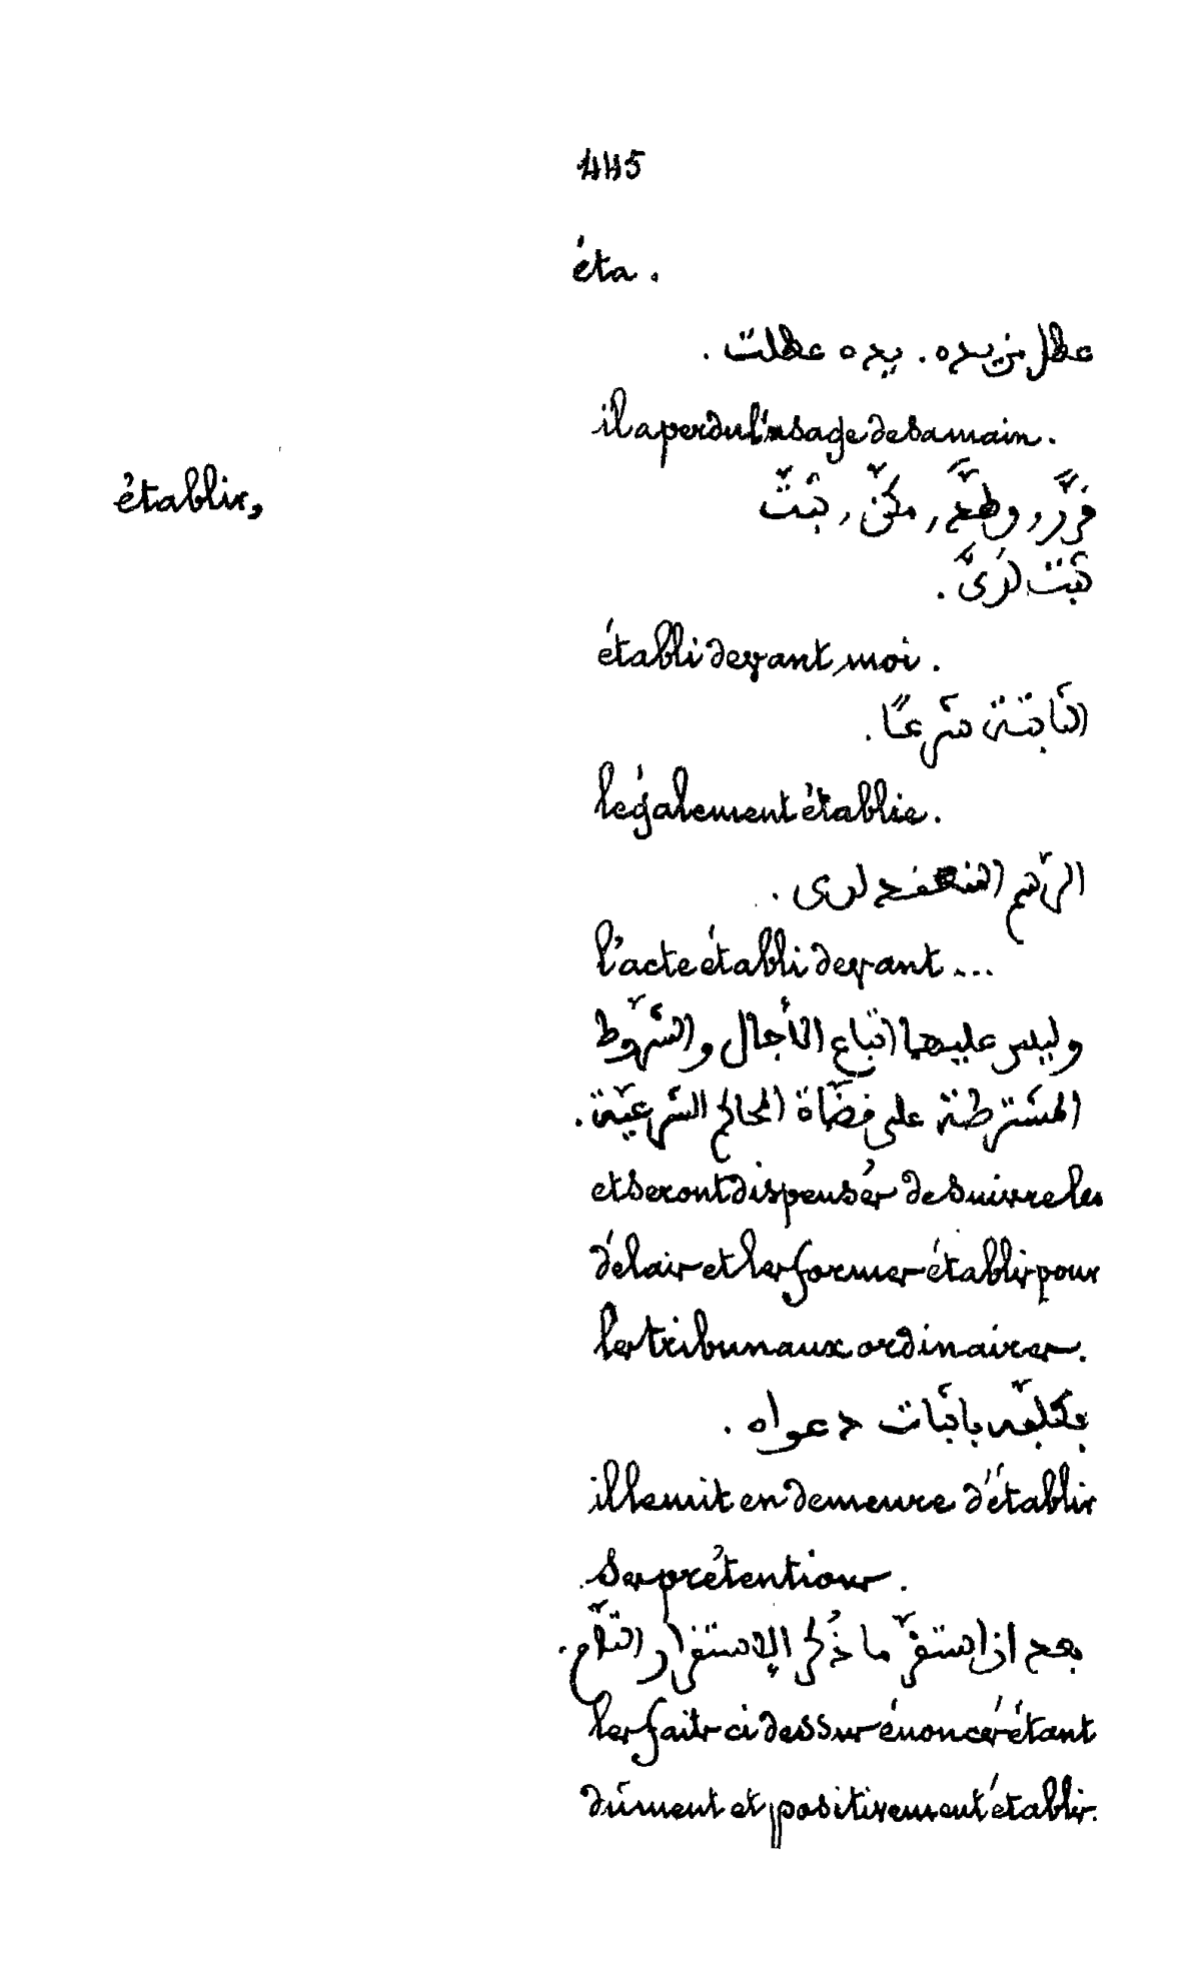 445
éta.
عطل من يده. يده عطلت.
il a perdu l'usage de sa main.
établir,
قرّر, وطّد, مكّن, ثبّت
ثبت لديّ.
établi devant moi.
الثابتة شرعًا.
légalement établie.
الرّسم المنعقد لدى.
l'acte établi devant...
وليس عليهما اتباع الأجال والشّروط
المشترطة على قضاة المحاكم الشّرعيّة.
et seront dispensés de suivre les
délais et les formes établis pour
les tribunaux ordinaires.
فكلّفه باثبات دعواه.
il le mit en demeure d'établir
ses prétentions.
بعد اذ استقرّ ما ذُكر الإستقرار التّام.
les faits ci dessus énoncés étant
dûment et positivement établis.